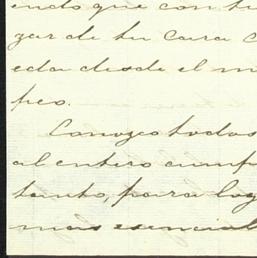 endo que con tu
zar de tu cara c
eda desde el m
peo.
Conozco todas
al entero cump
tanto, para log
mas esencial